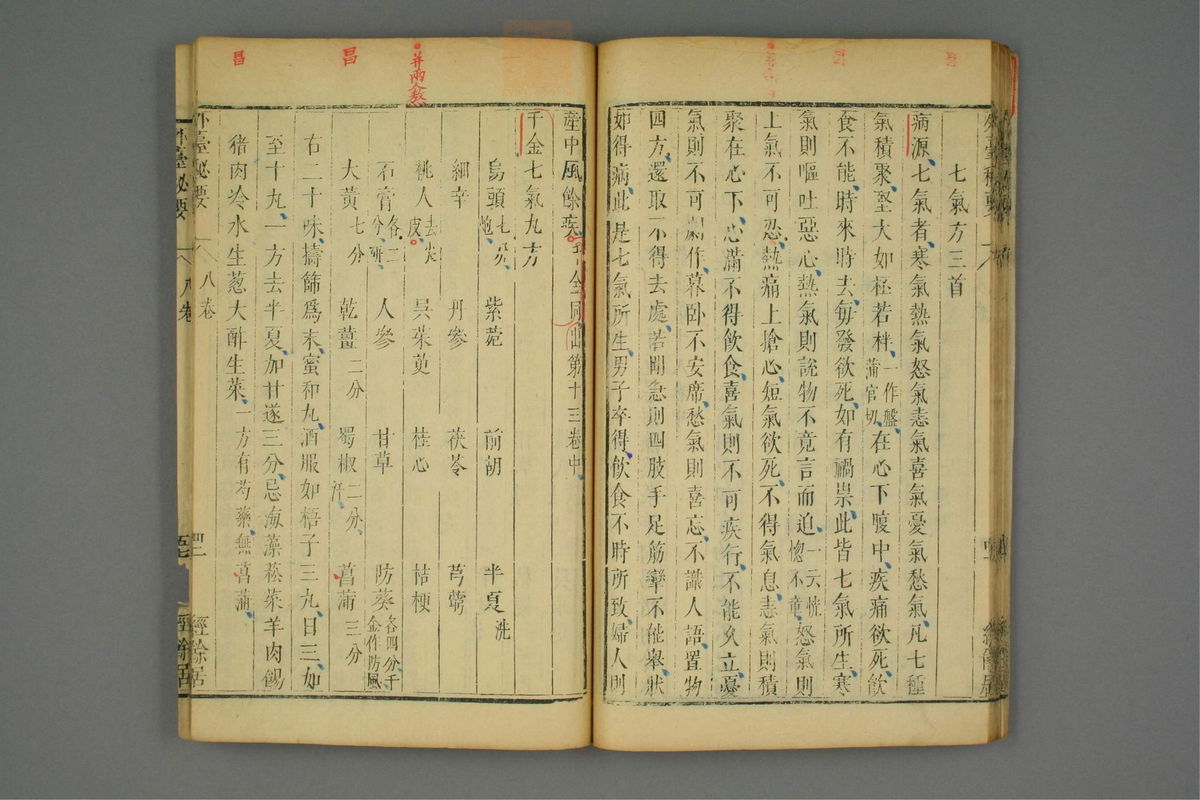 七氣方三首
病源七氣者寒氣熱氣怒氣恚氣喜氣憂氣愁氣凡七種
氣積聚堅大如柸若柈一作盤蒲官切在心下腹中疾痛欲死飲
食不能時來時去每發欲死如有禍祟此皆七氣所生寒
氣則嘔吐惡心熱氣則說物不竟言而迫一云恍惚不竟怒氣則
上氣不可忍熱痛上搶心短氣欲死不得氣息恚氣則積
聚在心下心滿不得飲食喜氣則不可疾行不能久立憂
氣則不可劇作暮卧不安席愁氣則喜忘不識人語置物
四方還取不得去處若聞急則四肢手足筋攣不能舉狀
如得病此是七氣所生男子卒得飲食不時所致婦人則
產中風餘疾千金同出第十三卷中
千金七氣丸方
烏頭七分炮 紫菀 前胡 半夏洗
細辛 丹參 茯苓 芎藭
桃人去尖皮 吳茱萸 桂心 桔梗
石膏各二分研 人參 甘草 防葵各四分千金作防風
大黃七分 乾薑二分 蜀椒二分汗 菖蒲三分
右二十味擣篩爲末蜜和丸酒服如梧子三丸日三如
至十丸一方去半夏加甘遂三分忌海藻菘菜羊肉餳
猪肉冷水生葱大酢生菜一方有芍藥無菖蒲
外臺秘要
八卷
經餘居
昌
昌
并兩人熬